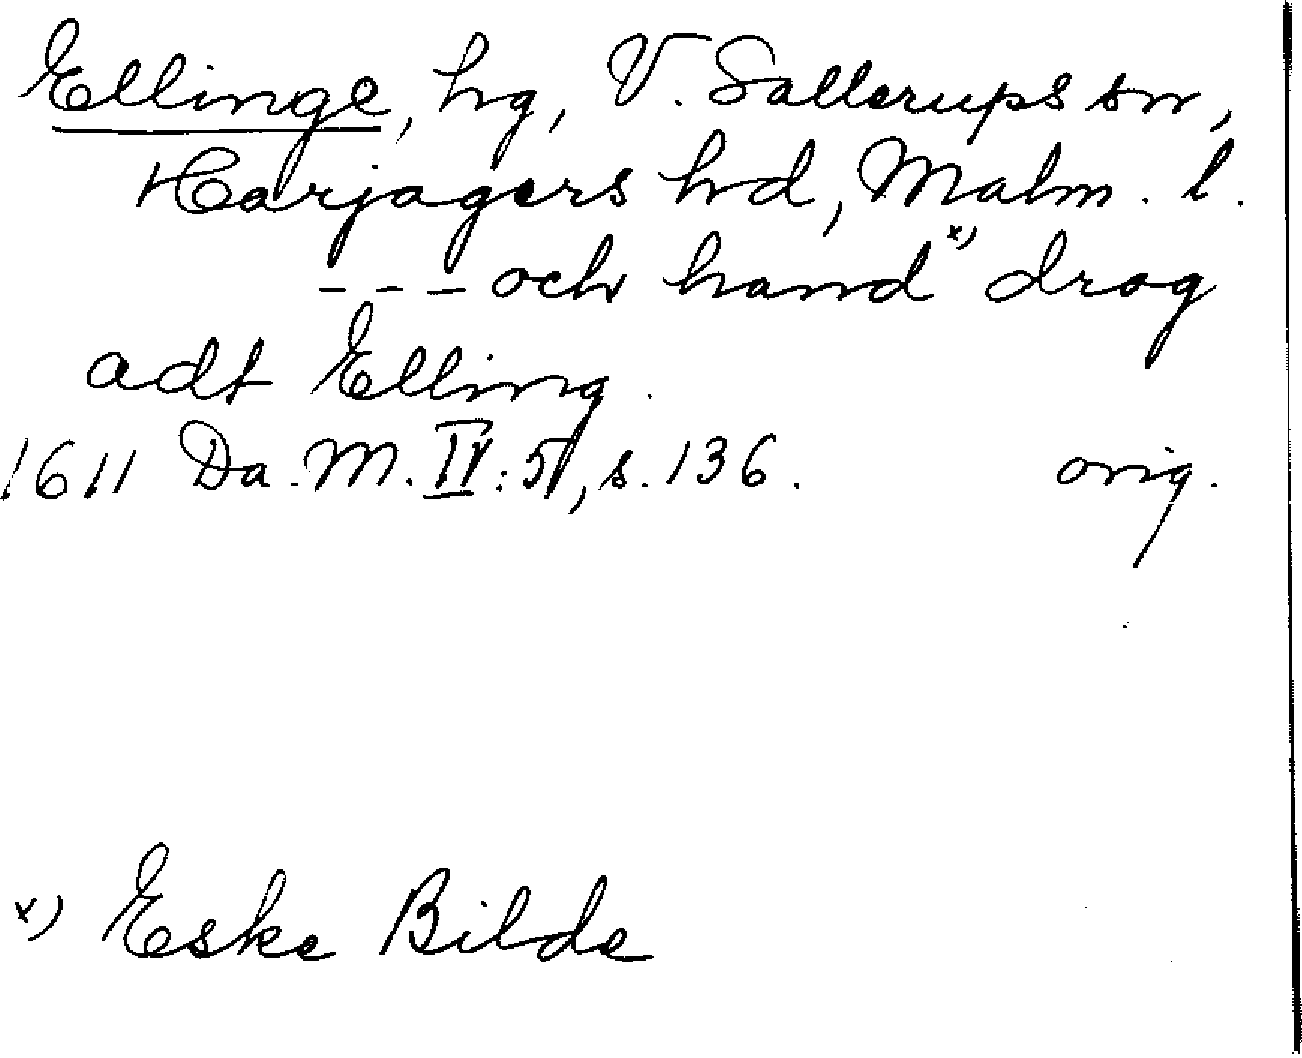 Ellinge, hg, V. Sallerups sn,
Harjagers hd, Malm. l.
- - - och hand x) drog
adt Elling.
1611 Da. M. IV: 5, s. 136. orig.
x) Eske Bilde